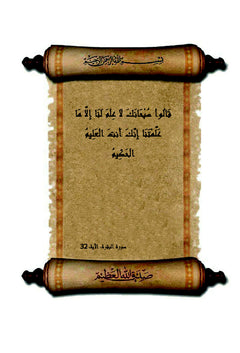 بسم الله الرحمن الرحيم
قالوا سبحانك لا علم لنا إلا ما
علمتنا إنك أنت العليم
الحكيم
سورة البقرة، الآية 32
صدق الله العظيم